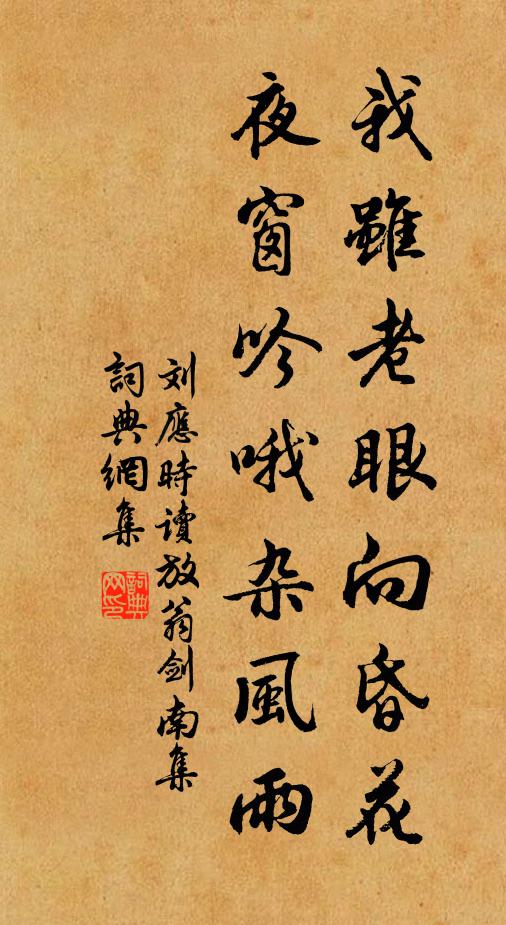 我雖老眼向昏花
夜窗吟哦杂風雨
刘應時讀放翁劍南集
詞典網集
詞典网印